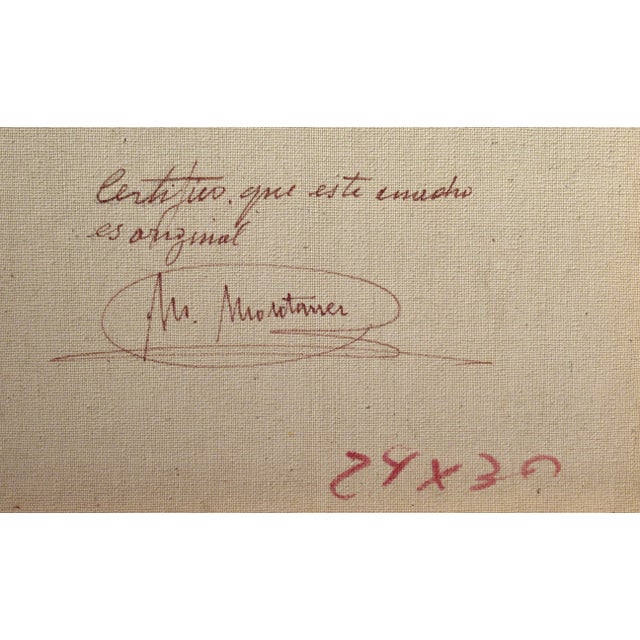 Certifico que este cuadro
es original
M. Montaner
24 x 30